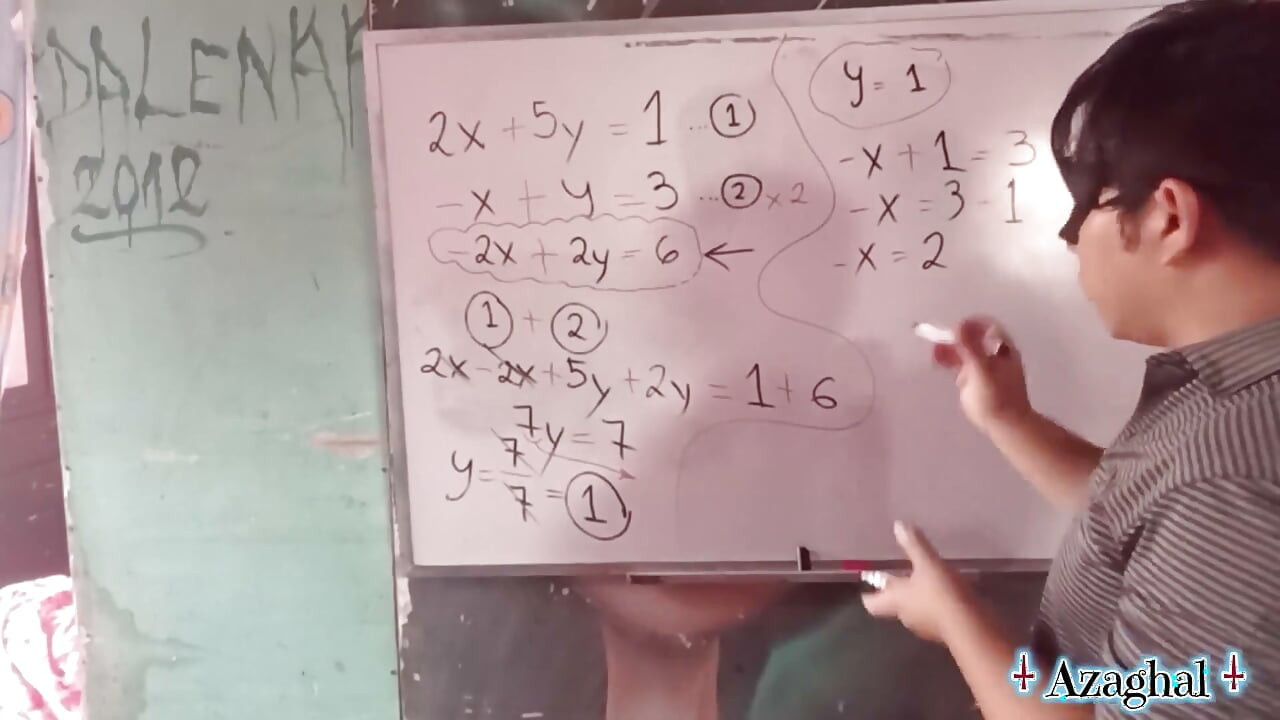 DALENAH
2012
2x + 5y = 1 ... ①
-x + y = 3 ... ② x 2
-2x + 2y = 6 ←
① + ②
2x - 2x + 5y + 2y = 1 + 6
7y = 7
y = 7/7 = ①
y = 1
-x + 1 = 3
-x = 3 - 1
-x = 2
Azaghal